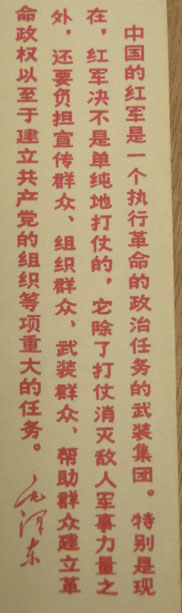 中国的红军是一个执行革命的政治任务的武装集团。特别是现
在，红军决不是单纯地打仗的，它除了打仗消灭敌人军事力量之
外，还要负担宣传群众、组织群众、武装群众、帮助群众建立革
命政权以至于建立共产党的组织等项重大的任务。
毛泽东